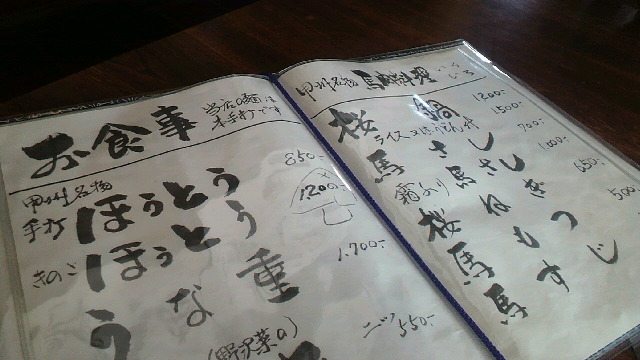 お食事
当店の麺は
本手打です
甲州名物
手打 ほうとう 850-
きのこ ほうとう 1200-
うな重 1,700-
(野沢菜の)
二ツ 550-
甲州名物 馬肉料理
桜鍋 1200-
ライス又はうどん付 1500-
馬さし 700-
霜ふり 馬さし 1,000-
桜ねぎ 650-
馬もつ 500
馬すじ